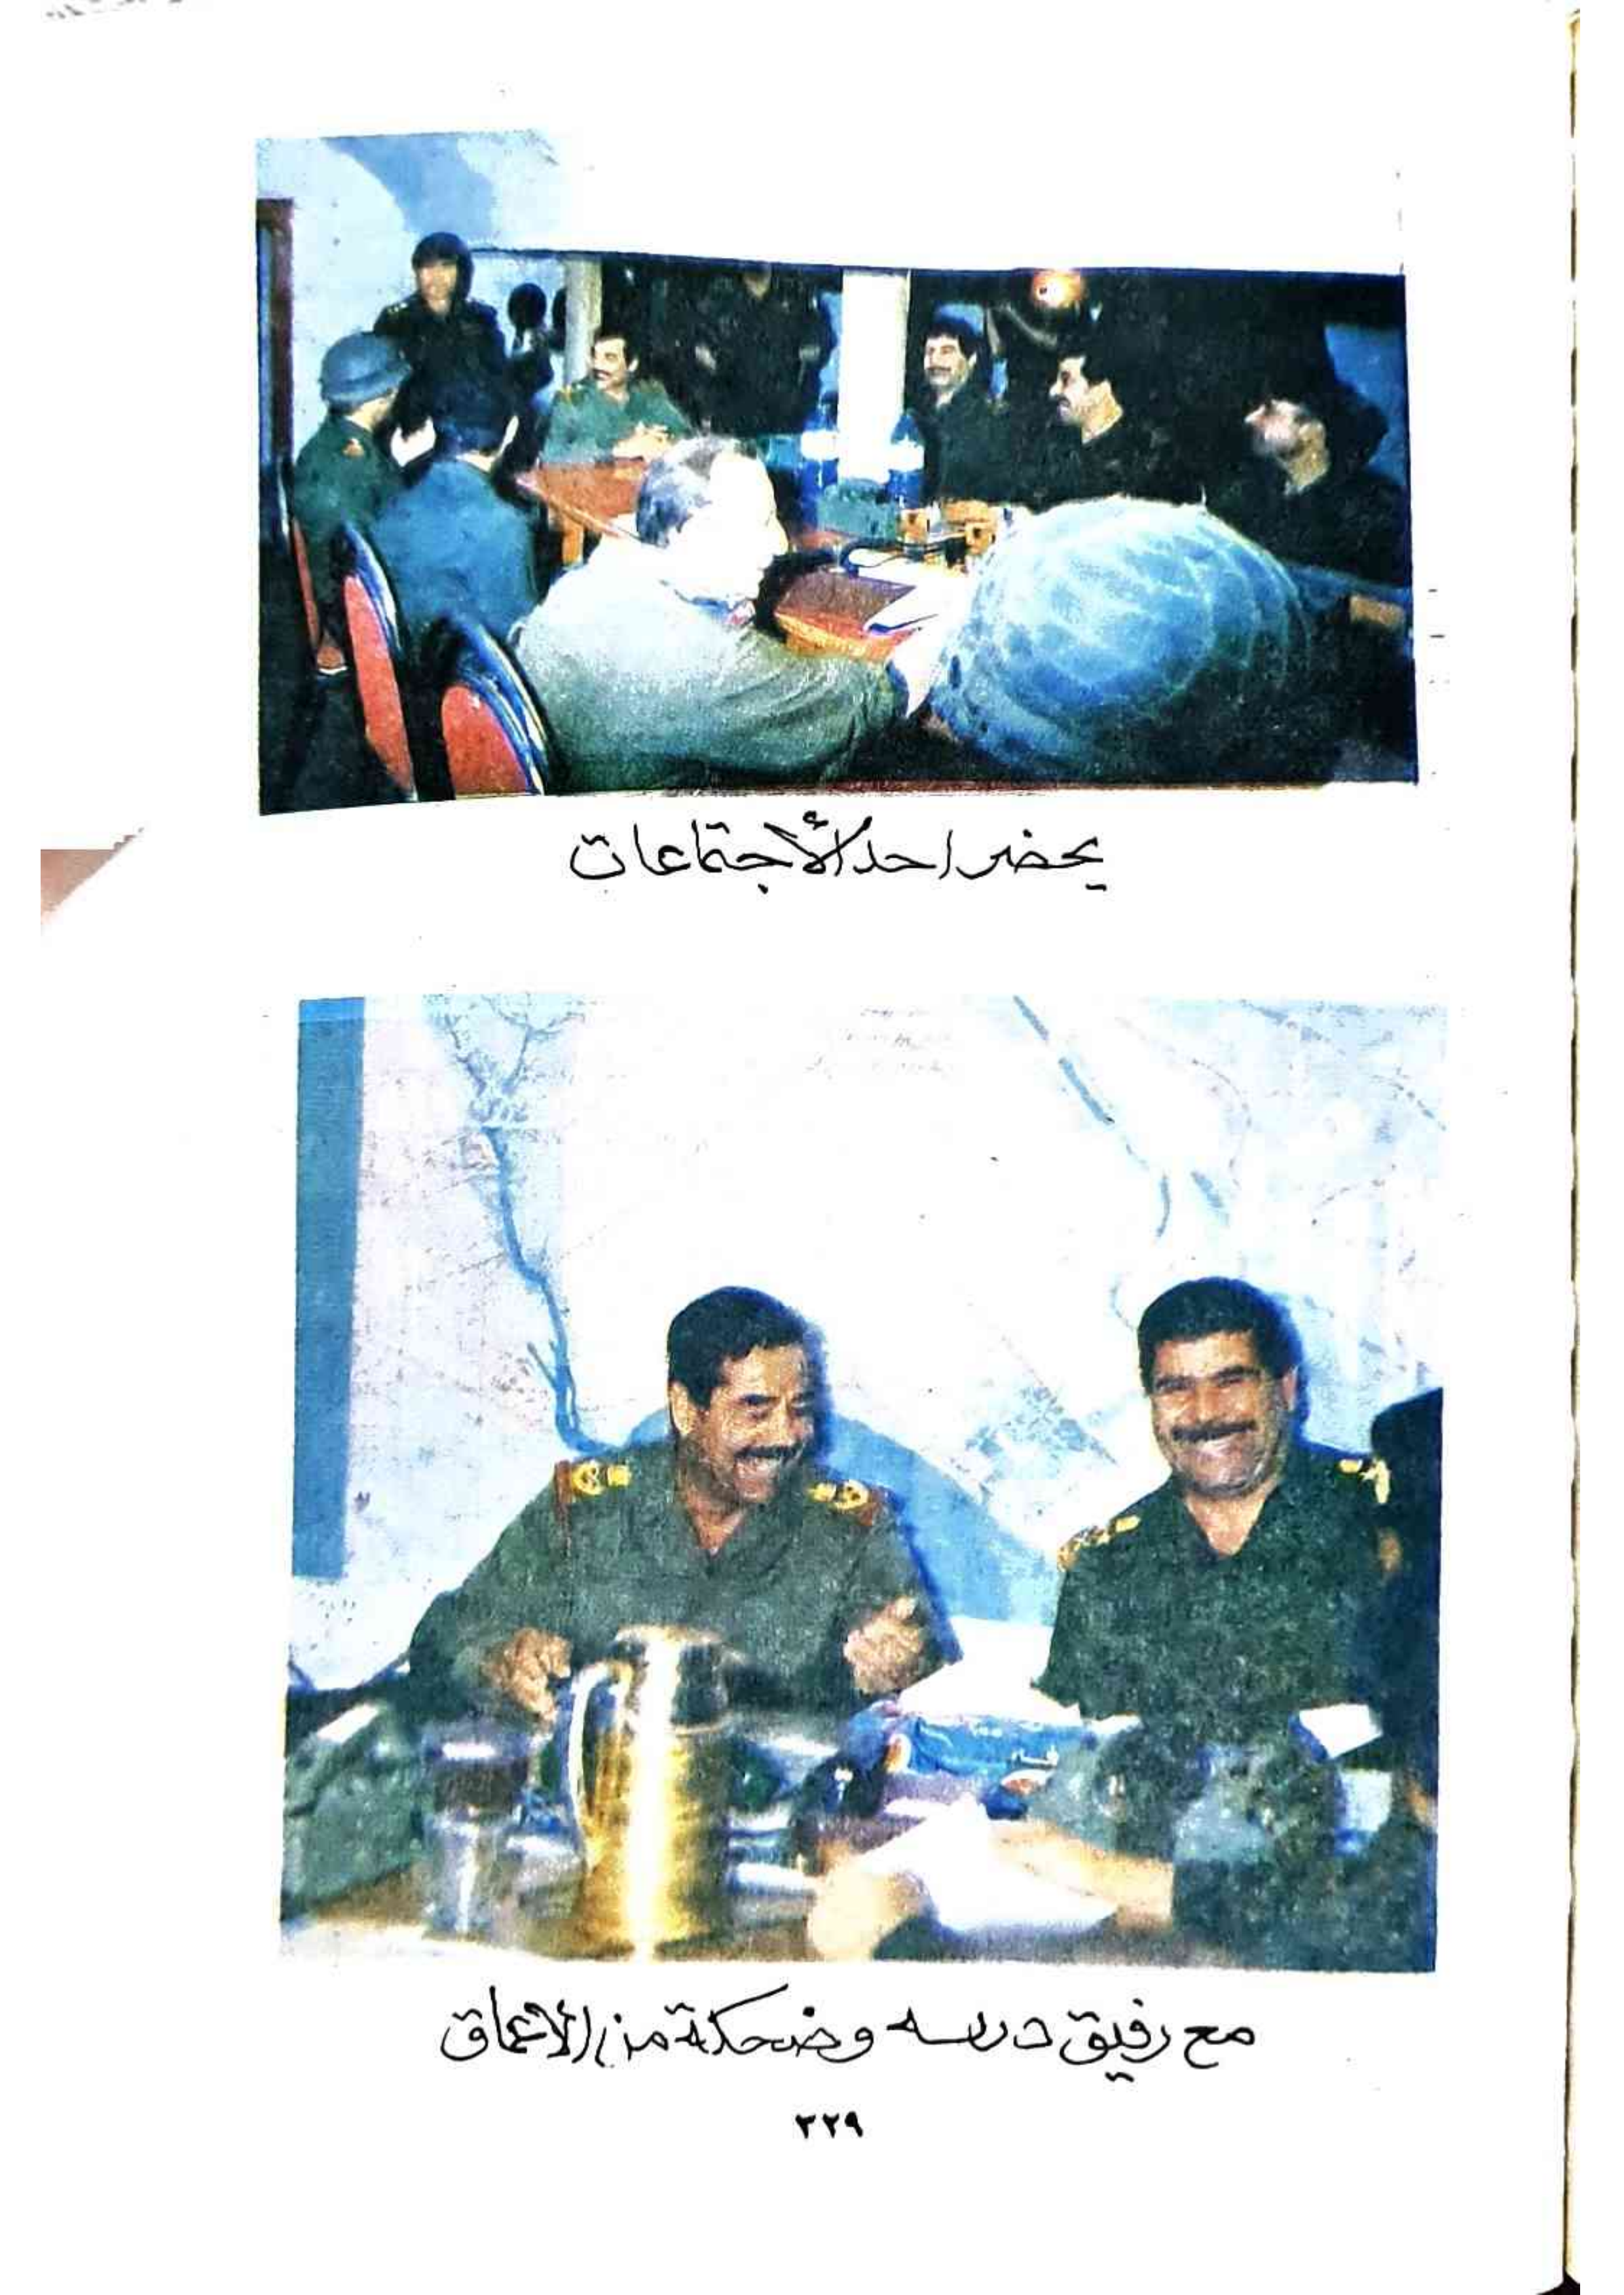 يحضر احد الأجتماعات
مع رفيق دربه وضحكة من الأعماق
٣٢٩